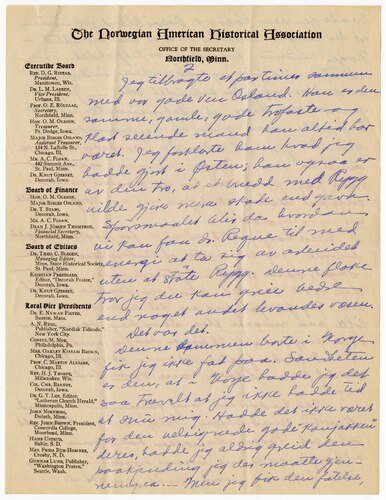 The Norwegian American Historical Association
OFFICE OF THE SECRETARY
Northfield, Minn.
2
Executive Board
REV. D. G. RISTAD,
President,
Manitowoc, Wis.
DR. L. M. LARSEN,
Vice President,
Urbana, Ill.
PROF. O. E. RÖLVAAG,
Secretary,
Northfield, Minn.
HON. O. M. OLESON,
Treasurer,
Ft. Dodge, Iowa.
MAJOR BIRGER OSLAND,
Assistant Treasurer,
Chicago, Ill.
MR. A. C. FLOAN,
St. Paul, Minn.
DR. KNUT GJERSET,
Decorah, Iowa.
Board of Finance
HON. O. M. OLESON,
MAJOR BIRGER OSLAND,
DR. T. STABO,
Decorah, Iowa.
MR. A. C. FLOAN,
DEAN J. JØRGEN THOMPSON,
Financial Secretary,
Northfield, Minn.
Board of Editors
DR. THEO. C. BLEGEN,
Managing Editor,
Minn. State Historical Society,
St. Paul, Minn.
KRISTIAN PRESTGARD,
Editor, "Decorah Posten,"
Decorah, Iowa.
DR. KNUT GJERSET,
Decorah, Iowa.
Local Vice Presidents
Boston, Mass.
A. N. RYGG,
Publisher, "Nordisk Tidende,"
New York City.
CONSUL M. MOE,
Philadelphia, Pa.
MRS. OAKLEY KISSAM BROWN,
Chicago, Ill.
PROF. C. MARTIN ALSAGER,
Chicago, Ill.
REV. H. J. THORPE,
Milwaukee, Wis.
Decorah, Iowa.
DR. G. T. LEE, Editor,
"Lutheran Church Herald,"
Minneapolis, Minn.
Duluth, Minn.
REV. JOHN BROWN, President,
Concordia College,
Moorhead, Minn.
HANS USTRUD,
Baltic, S. D.
Crosby, N. D.
GUNNAR LUND, Publisher,
"Washington Posten,"
Seattle, Wash.
Jeg tilbragte et par times sammen
med vor gode ven Osland. Han er den
samme, gamle, gode, trofaste og
klart seende mand han altid har
været. Jeg forklarte ham hvad jeg
hadde gjort i Østen; han ogsaa er
av den tro, at et brudd med Rygg
vilde gjøre mere skade end gavn.
Spørsmaalet blir da hvordan
vi kan faa dr. Reque til med
energi at ta sig av arbeidet
uten at støte Rygg. Denne floke
tror jeg du kan greie bedre
end noget andet levandes væsen.
Det var det.
Denne sammen borte i Norge
fik jeg ikke fat paa. Sandheten
er den, at i Norge hadde jeg det
saa travelt at jeg ikke hadde tid
at snu mig. Hadde det ikke været
for den velsignede gode konjakken
deres, hadde jeg aldrig greid den
paakjending jeg der maatte gjen-
nemgaa. — Men jeg fik den følelse